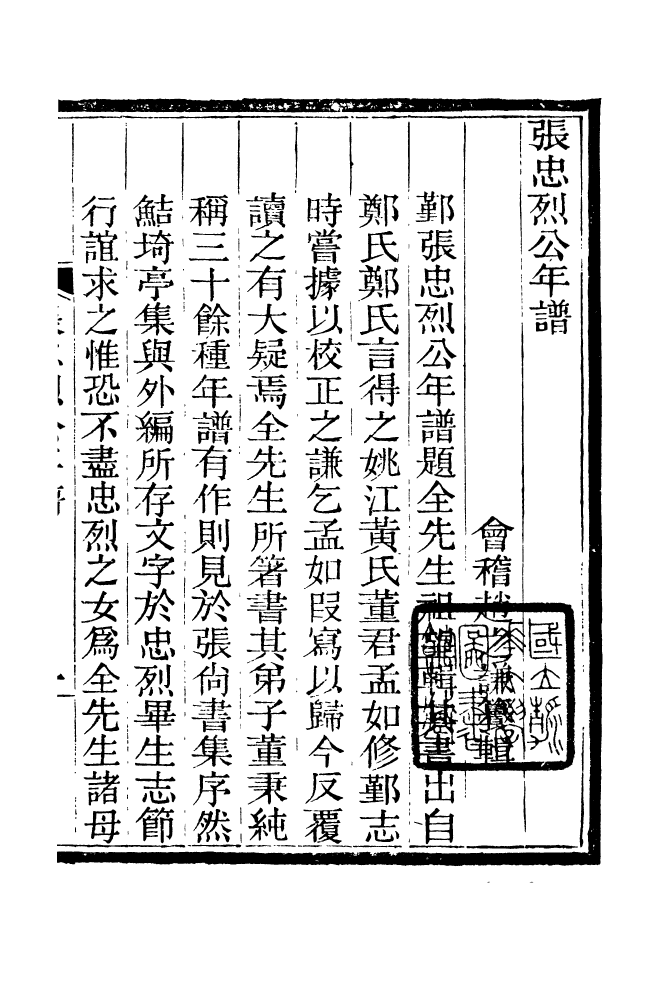 張忠烈公年譜
會稽趙之謙纂輯
鄞張忠烈公年譜題全先生祖望輯其書出自
鄭氏鄭氏言得之姚江黃氏董君孟如修鄞志
時嘗據以校正之謙乞孟如叚寫以歸今反覆
讀之有大疑焉全先生所箸書其弟子董秉純
稱三十餘種年譜有作則見於張尙書集序然
鮚埼亭集與外編所存文字於忠烈畢生志節
行誼求之惟恐不盡忠烈之女爲全先生諸母
一